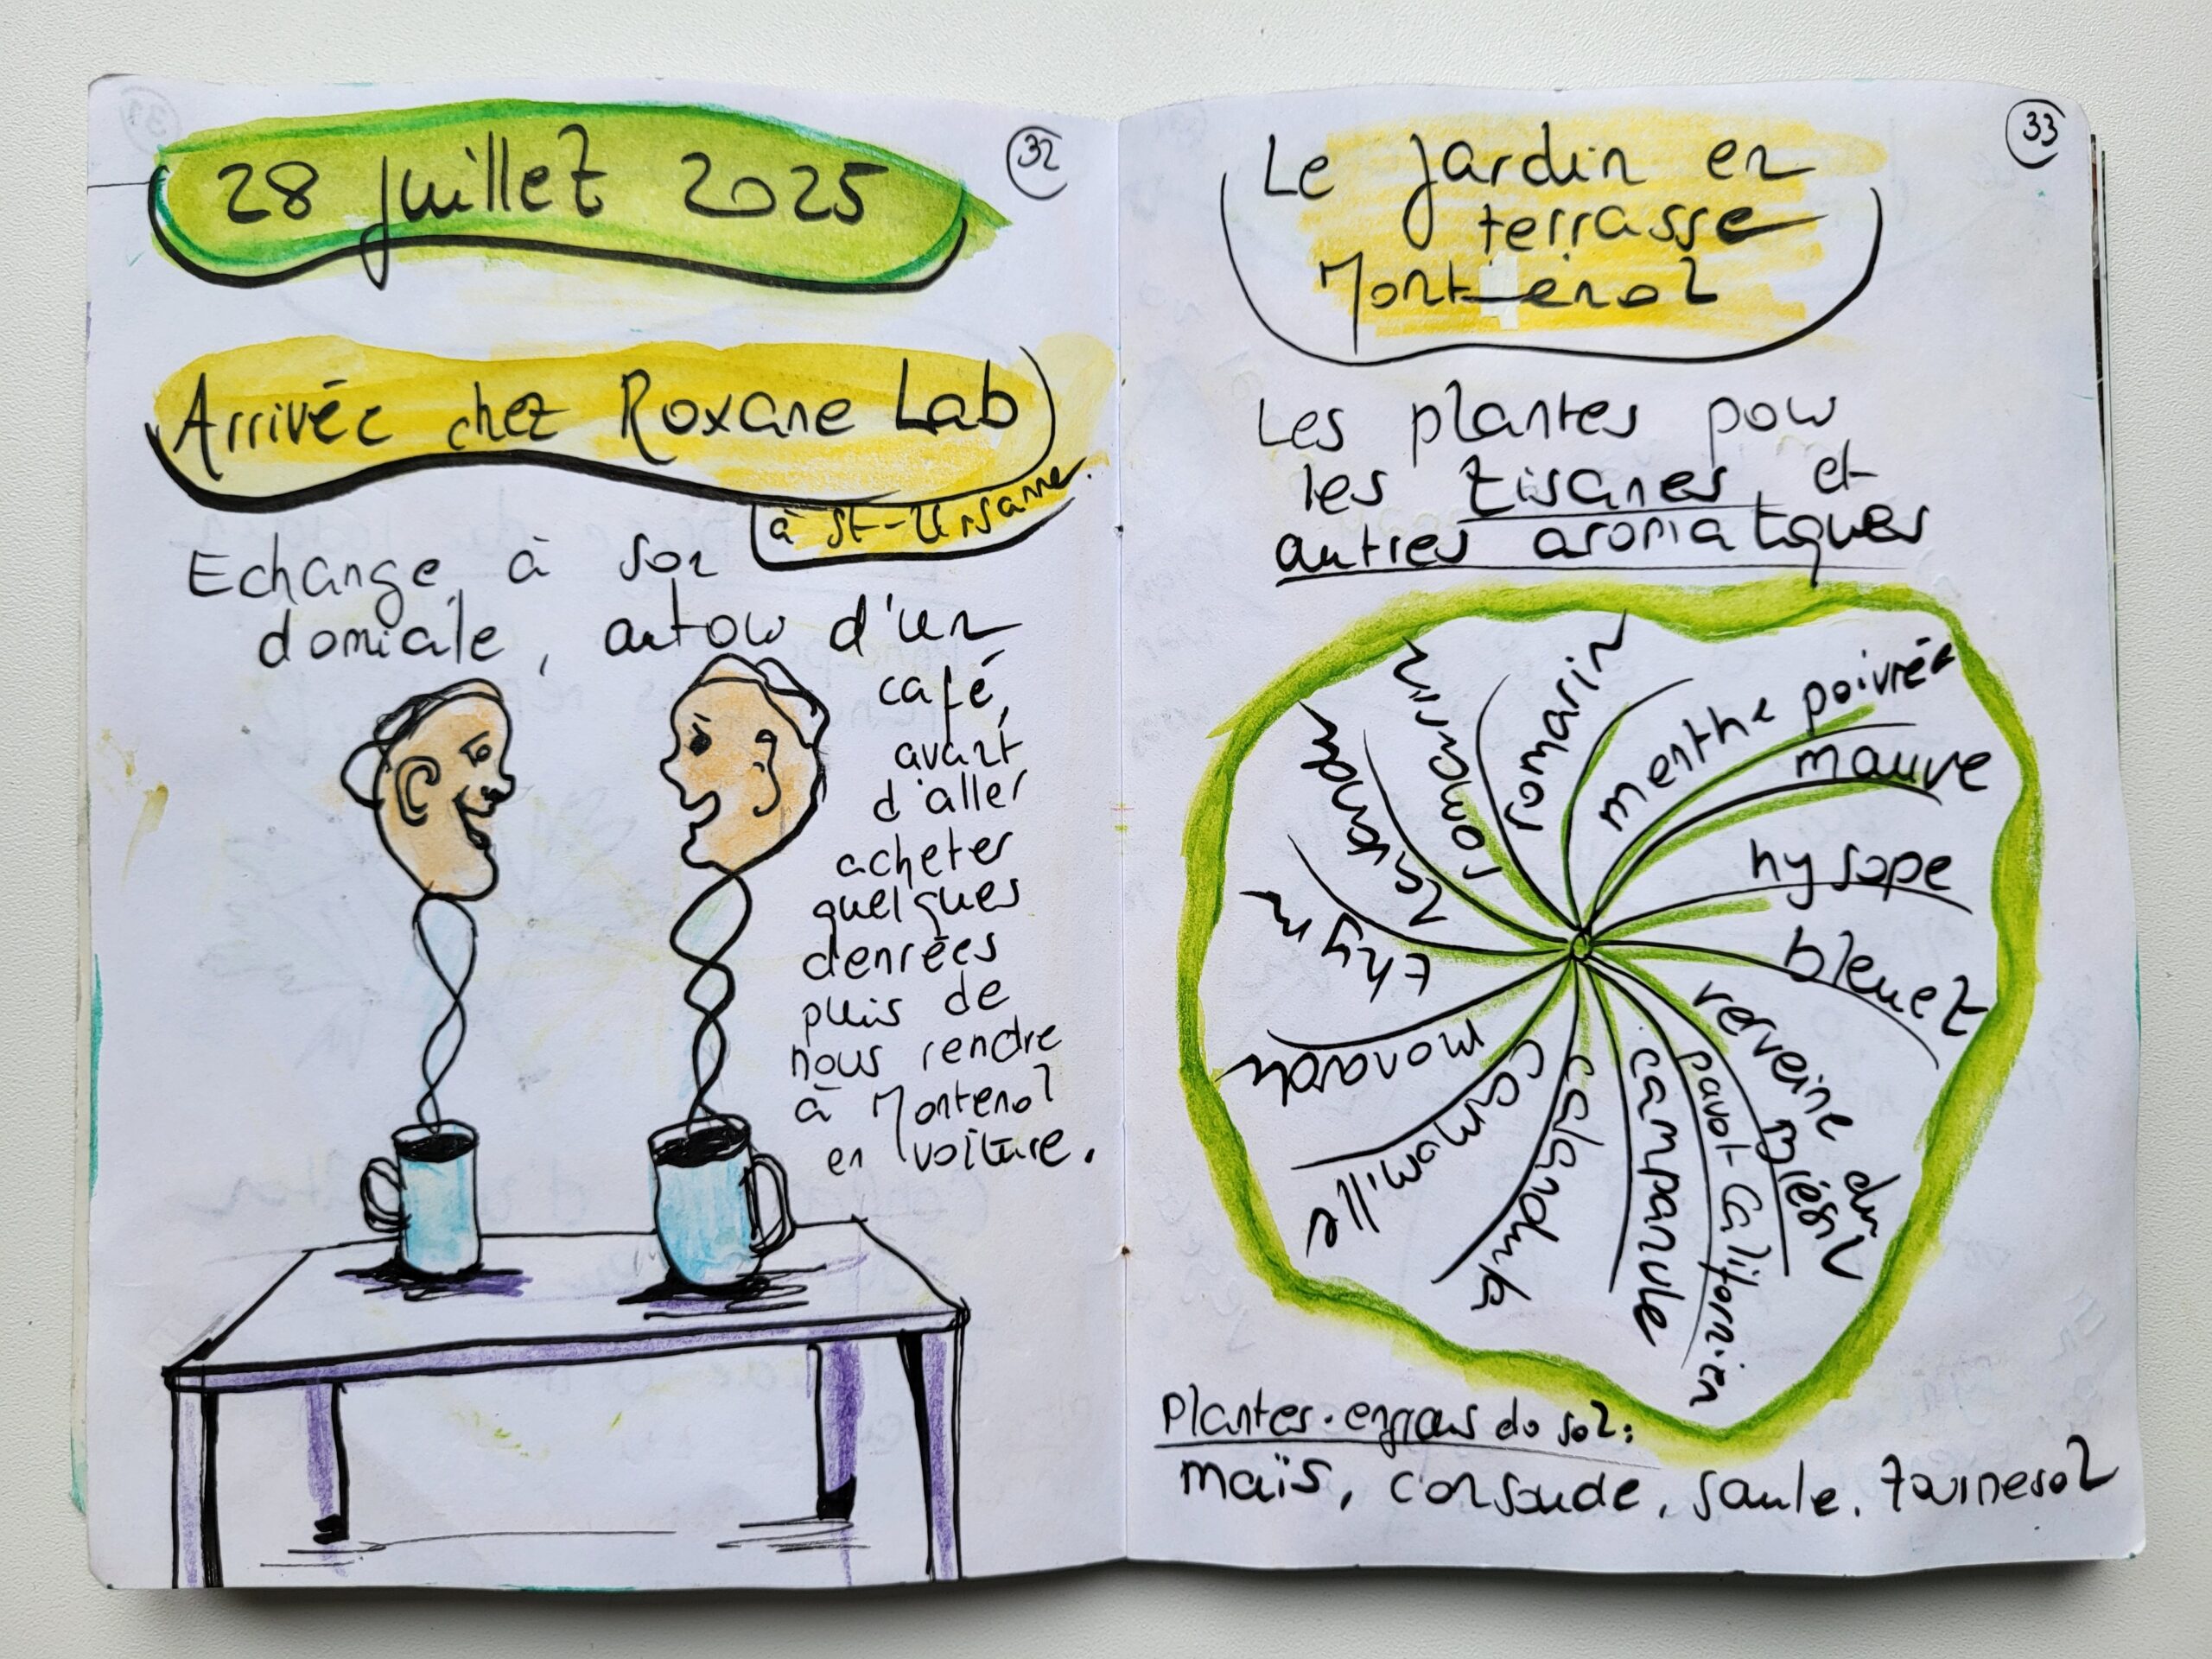 32
28 juillet 2025
Arrivée chez Roxane Lab
à St-Ursanne.
Echange à son
domicile, autour d'un
café,
avant
d'aller
acheter
quelques
denrées
puis de
nous rendre
à Montenol
en voiture.
33
Le jardin en
terrasse
Montenol
Les plantes pour
les tisanes et
autres aromatiques
romarin
menthe poivrée
mauve
hysope
bleuet
verveine du
pavot californien
campanule
calendula
camomille
monarde
thym
lavande
romarin
Plantes-engrais do sol:
maïs, consoude, saule, tournesol